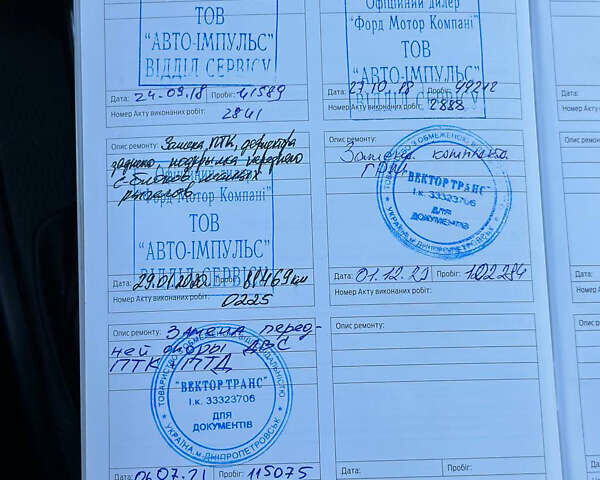 ТОВ
"АВТО-ІМПУЛЬС"
ВІДДІЛ СЕРВІСУ
Дата: 24.09.18 Пробіг: 41589
Номер Акту виконаних робіт:
2841
Офіційний дилер
"Форд Мотор Компані"
ТОВ
"АВТО-ІМПУЛЬС"
ВІДДІЛ СЕРВІСУ
Дата: 27.10.18 Пробіг: 49212
Номер Акту виконаних робіт:
2888
Опис ремонту: Замена ПТК,
заднего, передного
рычагов
Офіційний дилер
"Форд Мотор Компані"
ТОВ
"АВТО-ІМПУЛЬС"
ВІДДІЛ СЕРВІСУ
Дата: 29.01.2020 Пробіг: 81469км
Номер Акту виконаних робіт:
0225
Замена комплекта
ГРМ
ТОВАРИСТВО З ОБМЕЖЕНОЮ
"ВЕКТОР ТРАНС"
І.к. 33323706
ДЛЯ
ДОКУМЕНТІВ
УКРАЇНА м.ДНІПРОПЕТРОВСЬК
Дата: 01.12.20 Пробіг: 102284
Номер Акту виконаних робіт:
Опис ремонту: Замена перед-
ней опоры ДВС
ПТК ПТД
ТОВАРИСТВО З ОБМЕЖЕНОЮ ВІДПОВІДАЛЬНІСТЮ
"ВЕКТОР ТРАНС"
І.к. 33323706
ДЛЯ
ДОКУМЕНТІВ
УКРАЇНА м.ДНІПРОПЕТРОВСЬК
Дата: 06.07.21 Пробіг: 115075
Опис ремонту:
Дата: Пробіг: